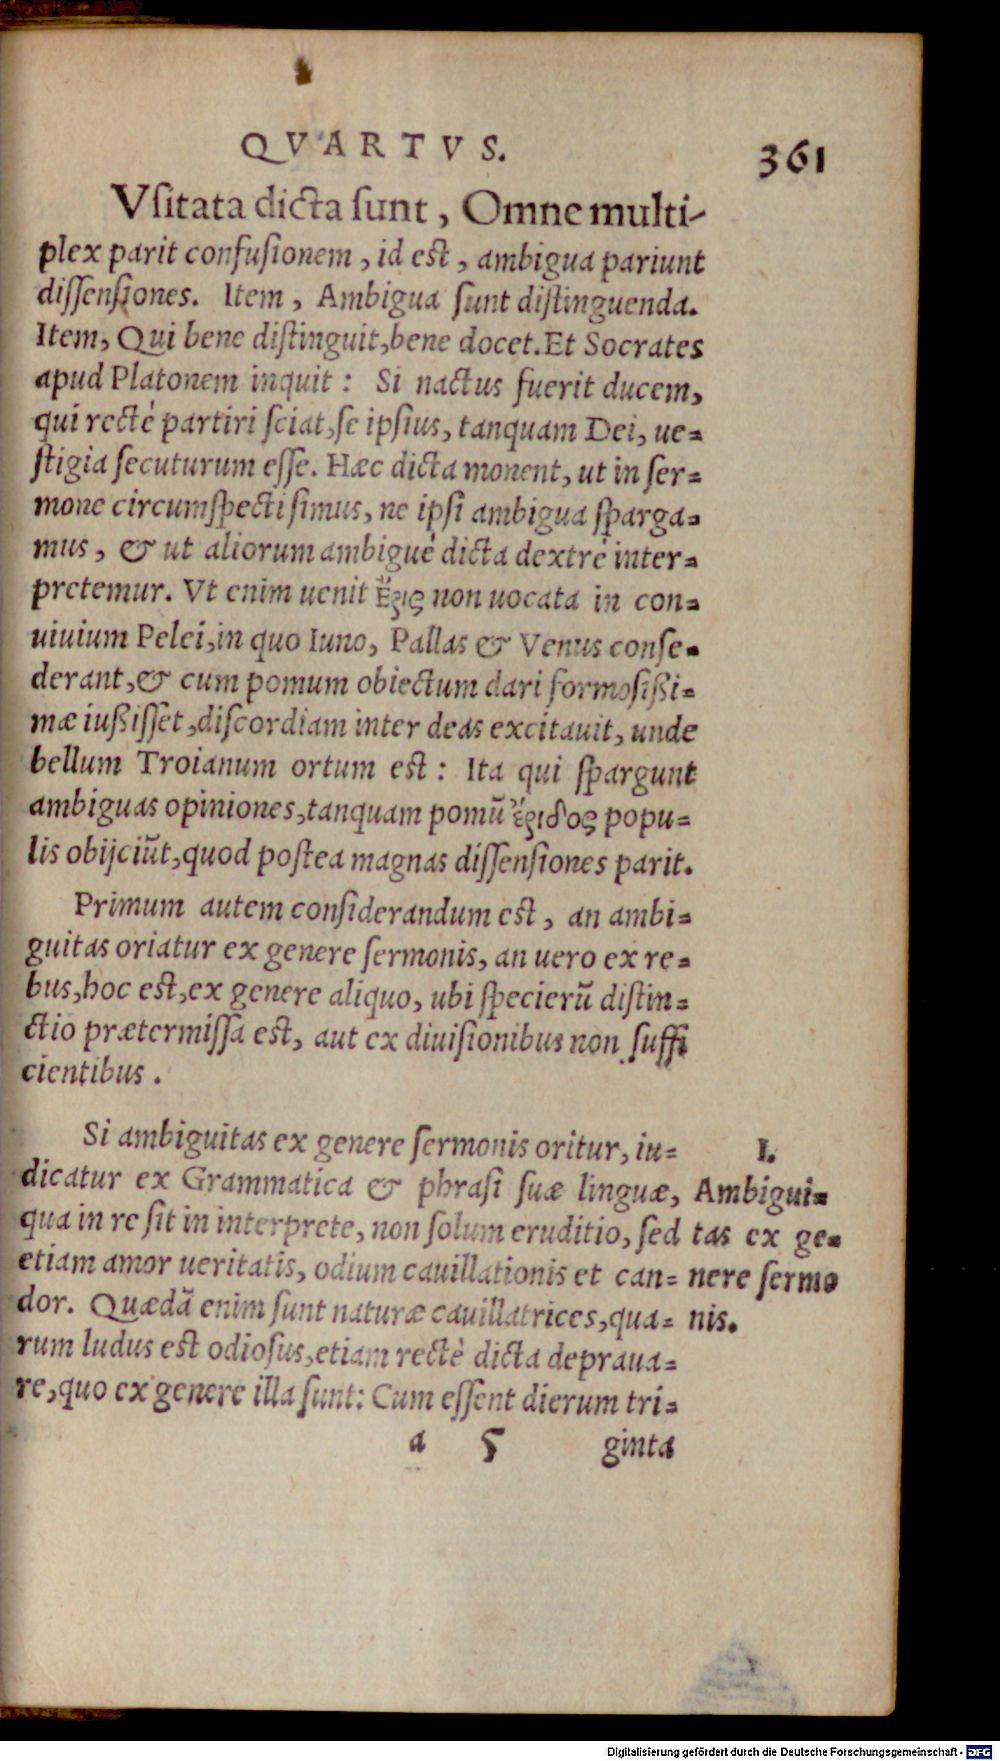 QVARTVS.
361
Vſitata dicta ſunt, Omne multi-
plex parit confuſionem, id eſt, ambigua pariunt
diſſenſiones. Item, Ambigua ſunt diſtinguenda.
Item, Qui bene diſtinguit, bene docet. Et Socrates
apud Platonem inquit: Si nactus fuerit ducem,
qui rectè partiri ſciat, ſe ipſius, tanquam Dei, ue=
ſtigia ſecuturum eſſe. Hæc dicta monent, ut in ſer=
mone circumſpecti ſimus, ne ipſi ambigua ſparga=
mus, & ut aliorum ambiguè dicta dextrè inter=
pretemur. Vt enim uenit Ἔρις non uocata in con=
uiuium Pelei, in quo Iuno, Pallas & Venus conſe=
derant, & cum pomum obiectum dari formoſißi=
mæ iußiſſet, diſcordiam inter deas excitauit, unde
bellum Troianum ortum eſt: Ita qui ſpargunt
ambiguas opiniones, tanquam pomū ἔριδος popu=
lis obijciūt, quod poſtea magnas diſſenſiones parit.
Primum autem conſiderandum eſt, an ambi=
guitas oriatur ex genere ſermonis, an uero ex re=
bus, hoc eſt, ex genere aliquo, ubi ſpecierū diſtin=
ctio prætermiſſa eſt, aut ex diuiſionibus non ſuffi
cientibus.
Si ambiguitas ex genere ſermonis oritur, iu=
dicatur ex Grammatica & phraſi ſuæ linguæ,
qua in re ſit in interprete, non ſolum eruditio, ſed
etiam amor ueritatis, odium cauillationis et can=
dor. Quædā enim ſunt naturæ cauillatrices, qua=
rum ludus eſt odioſus, etiam rectè dicta depraua=
re, quo ex genere illa ſunt: Cum eſſent dierum tri=
I.
Ambigui=
tas ex ge=
nere ſermo
nis.
a 5
ginta
Digitalisierung gefördert durch die Deutsche Forschungsgemeinschaft - DFG